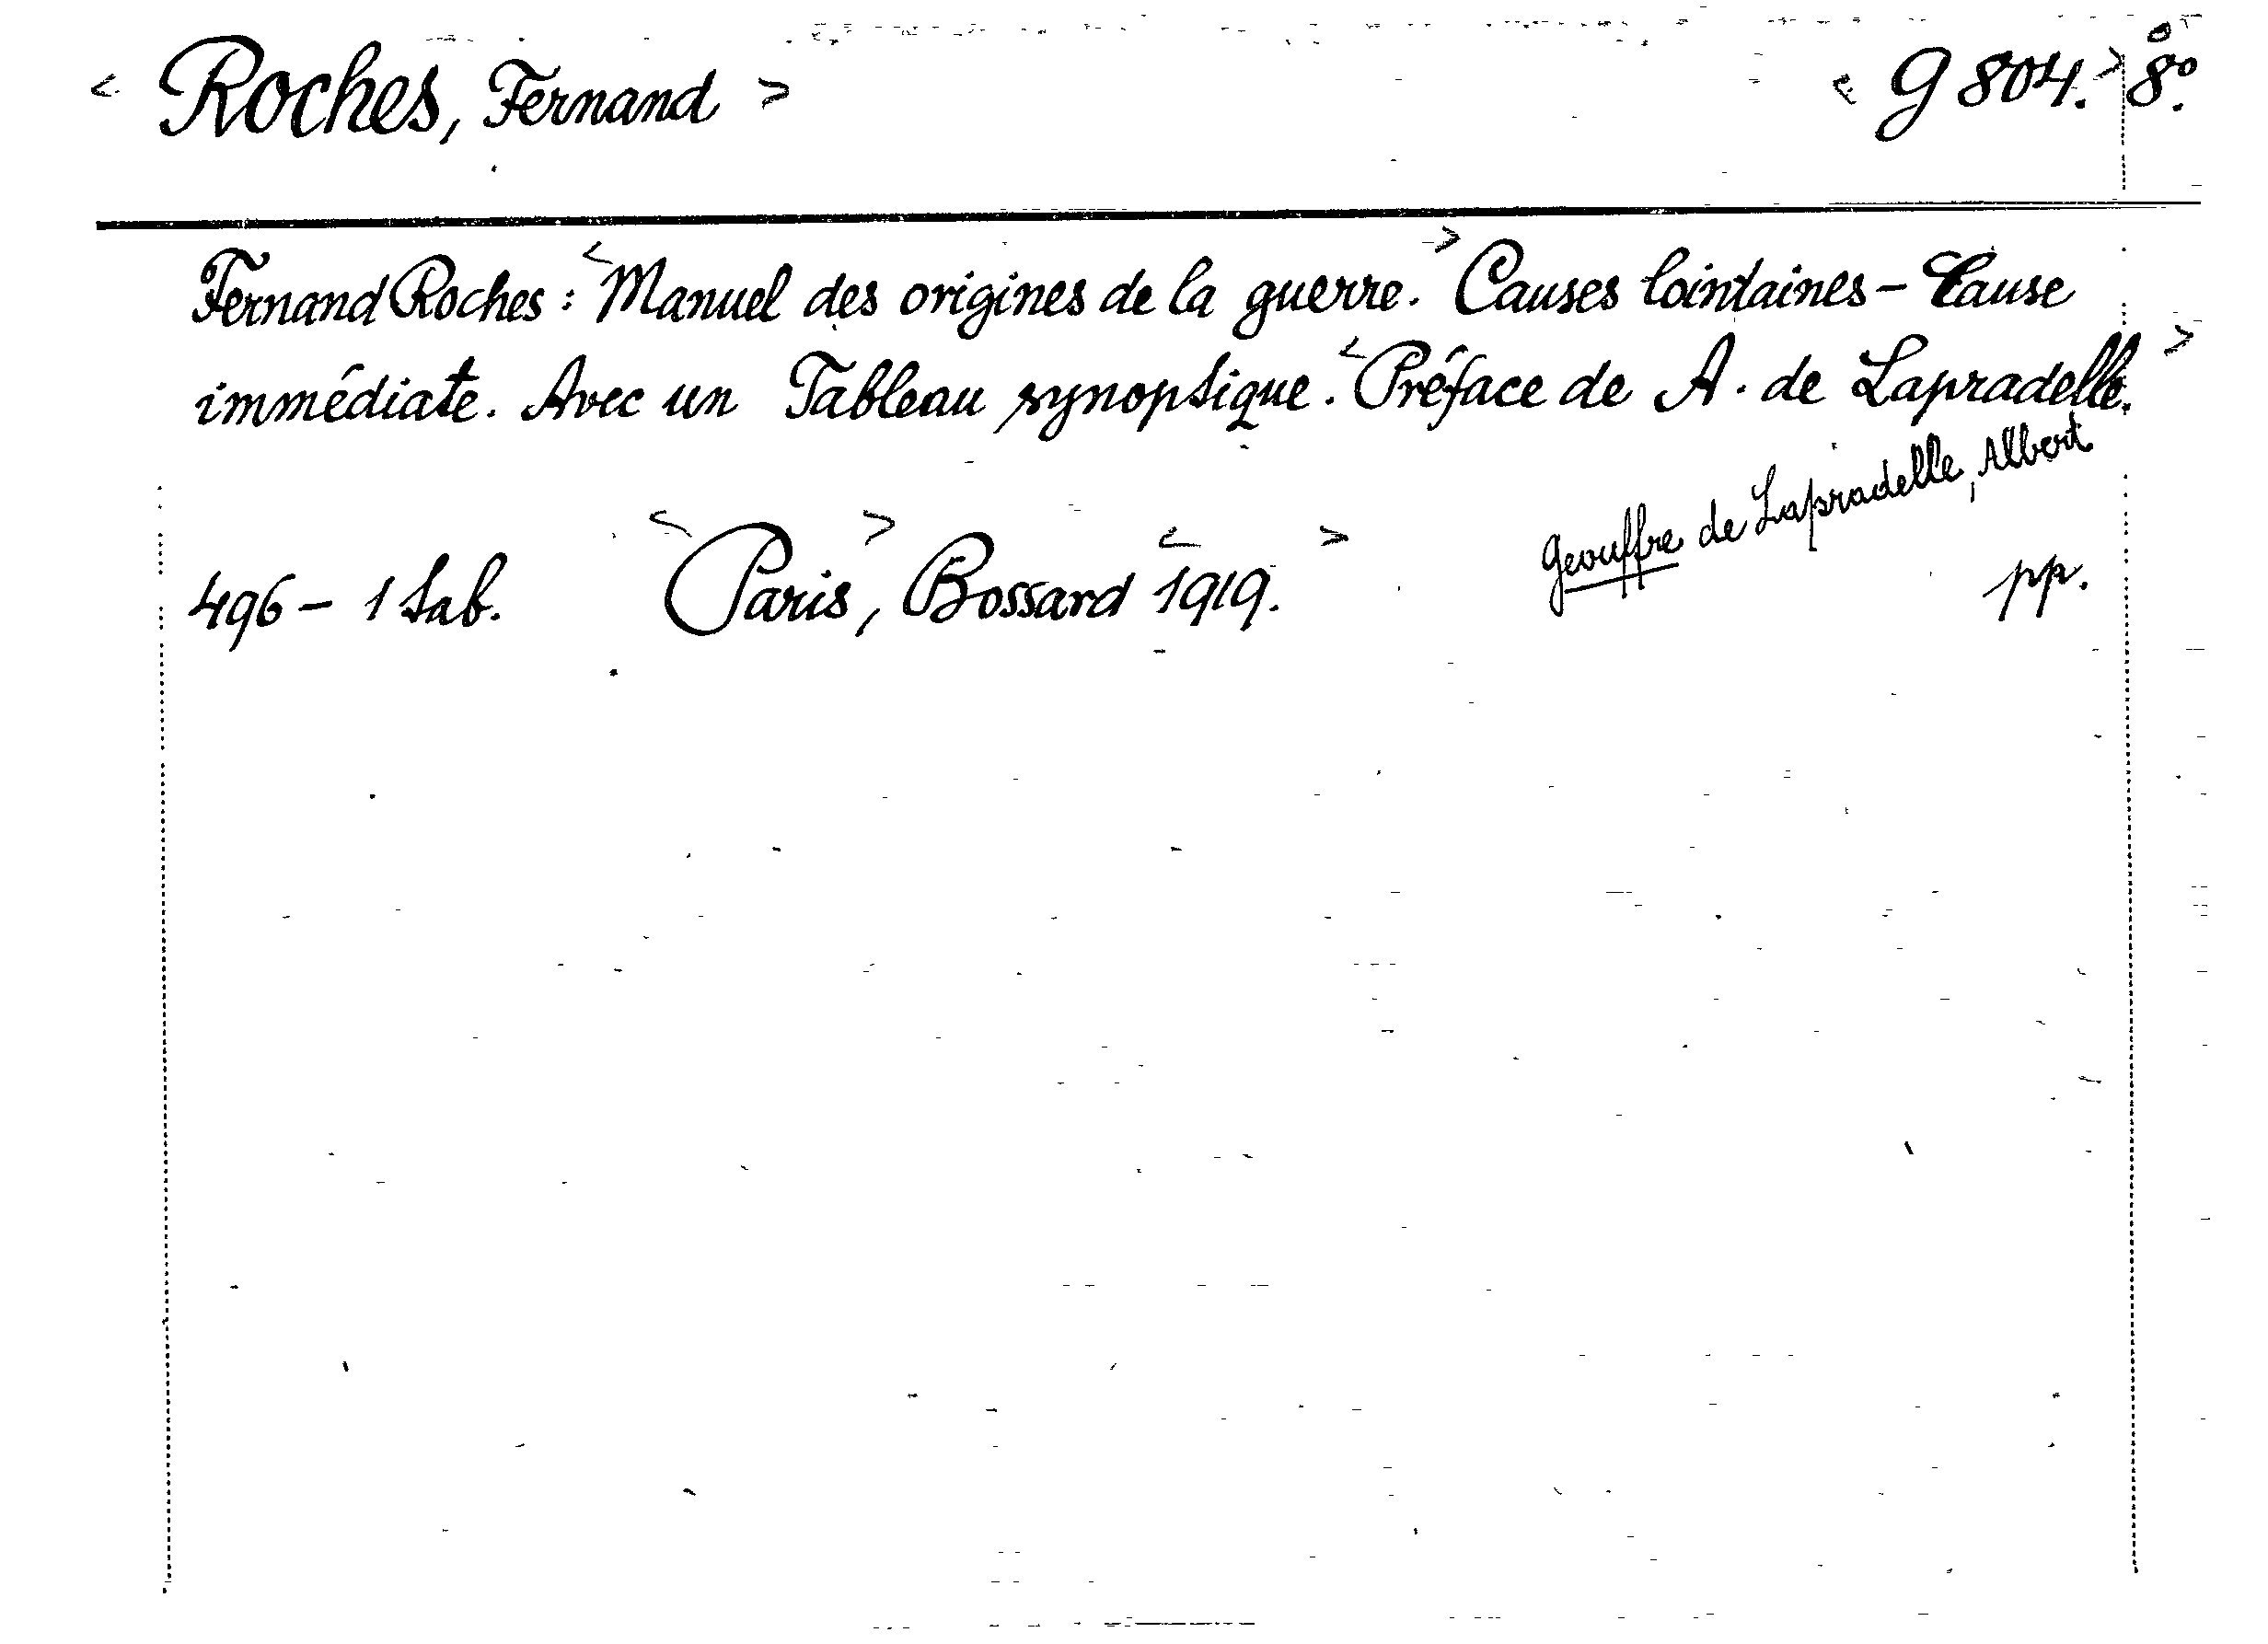 < Roches, Fernand > < G 804. > 8º.
Fernand Roches: <Manuel des origines de la guerre.> Causes lointaines - Cause
immédiate. Avec un Tableau synoptique. <Préface de A. de Lapradelle.>
Geouffre de Lapradelle, Albert
496 - 1 Tab. <Paris>, Bossard <1919.> pp.